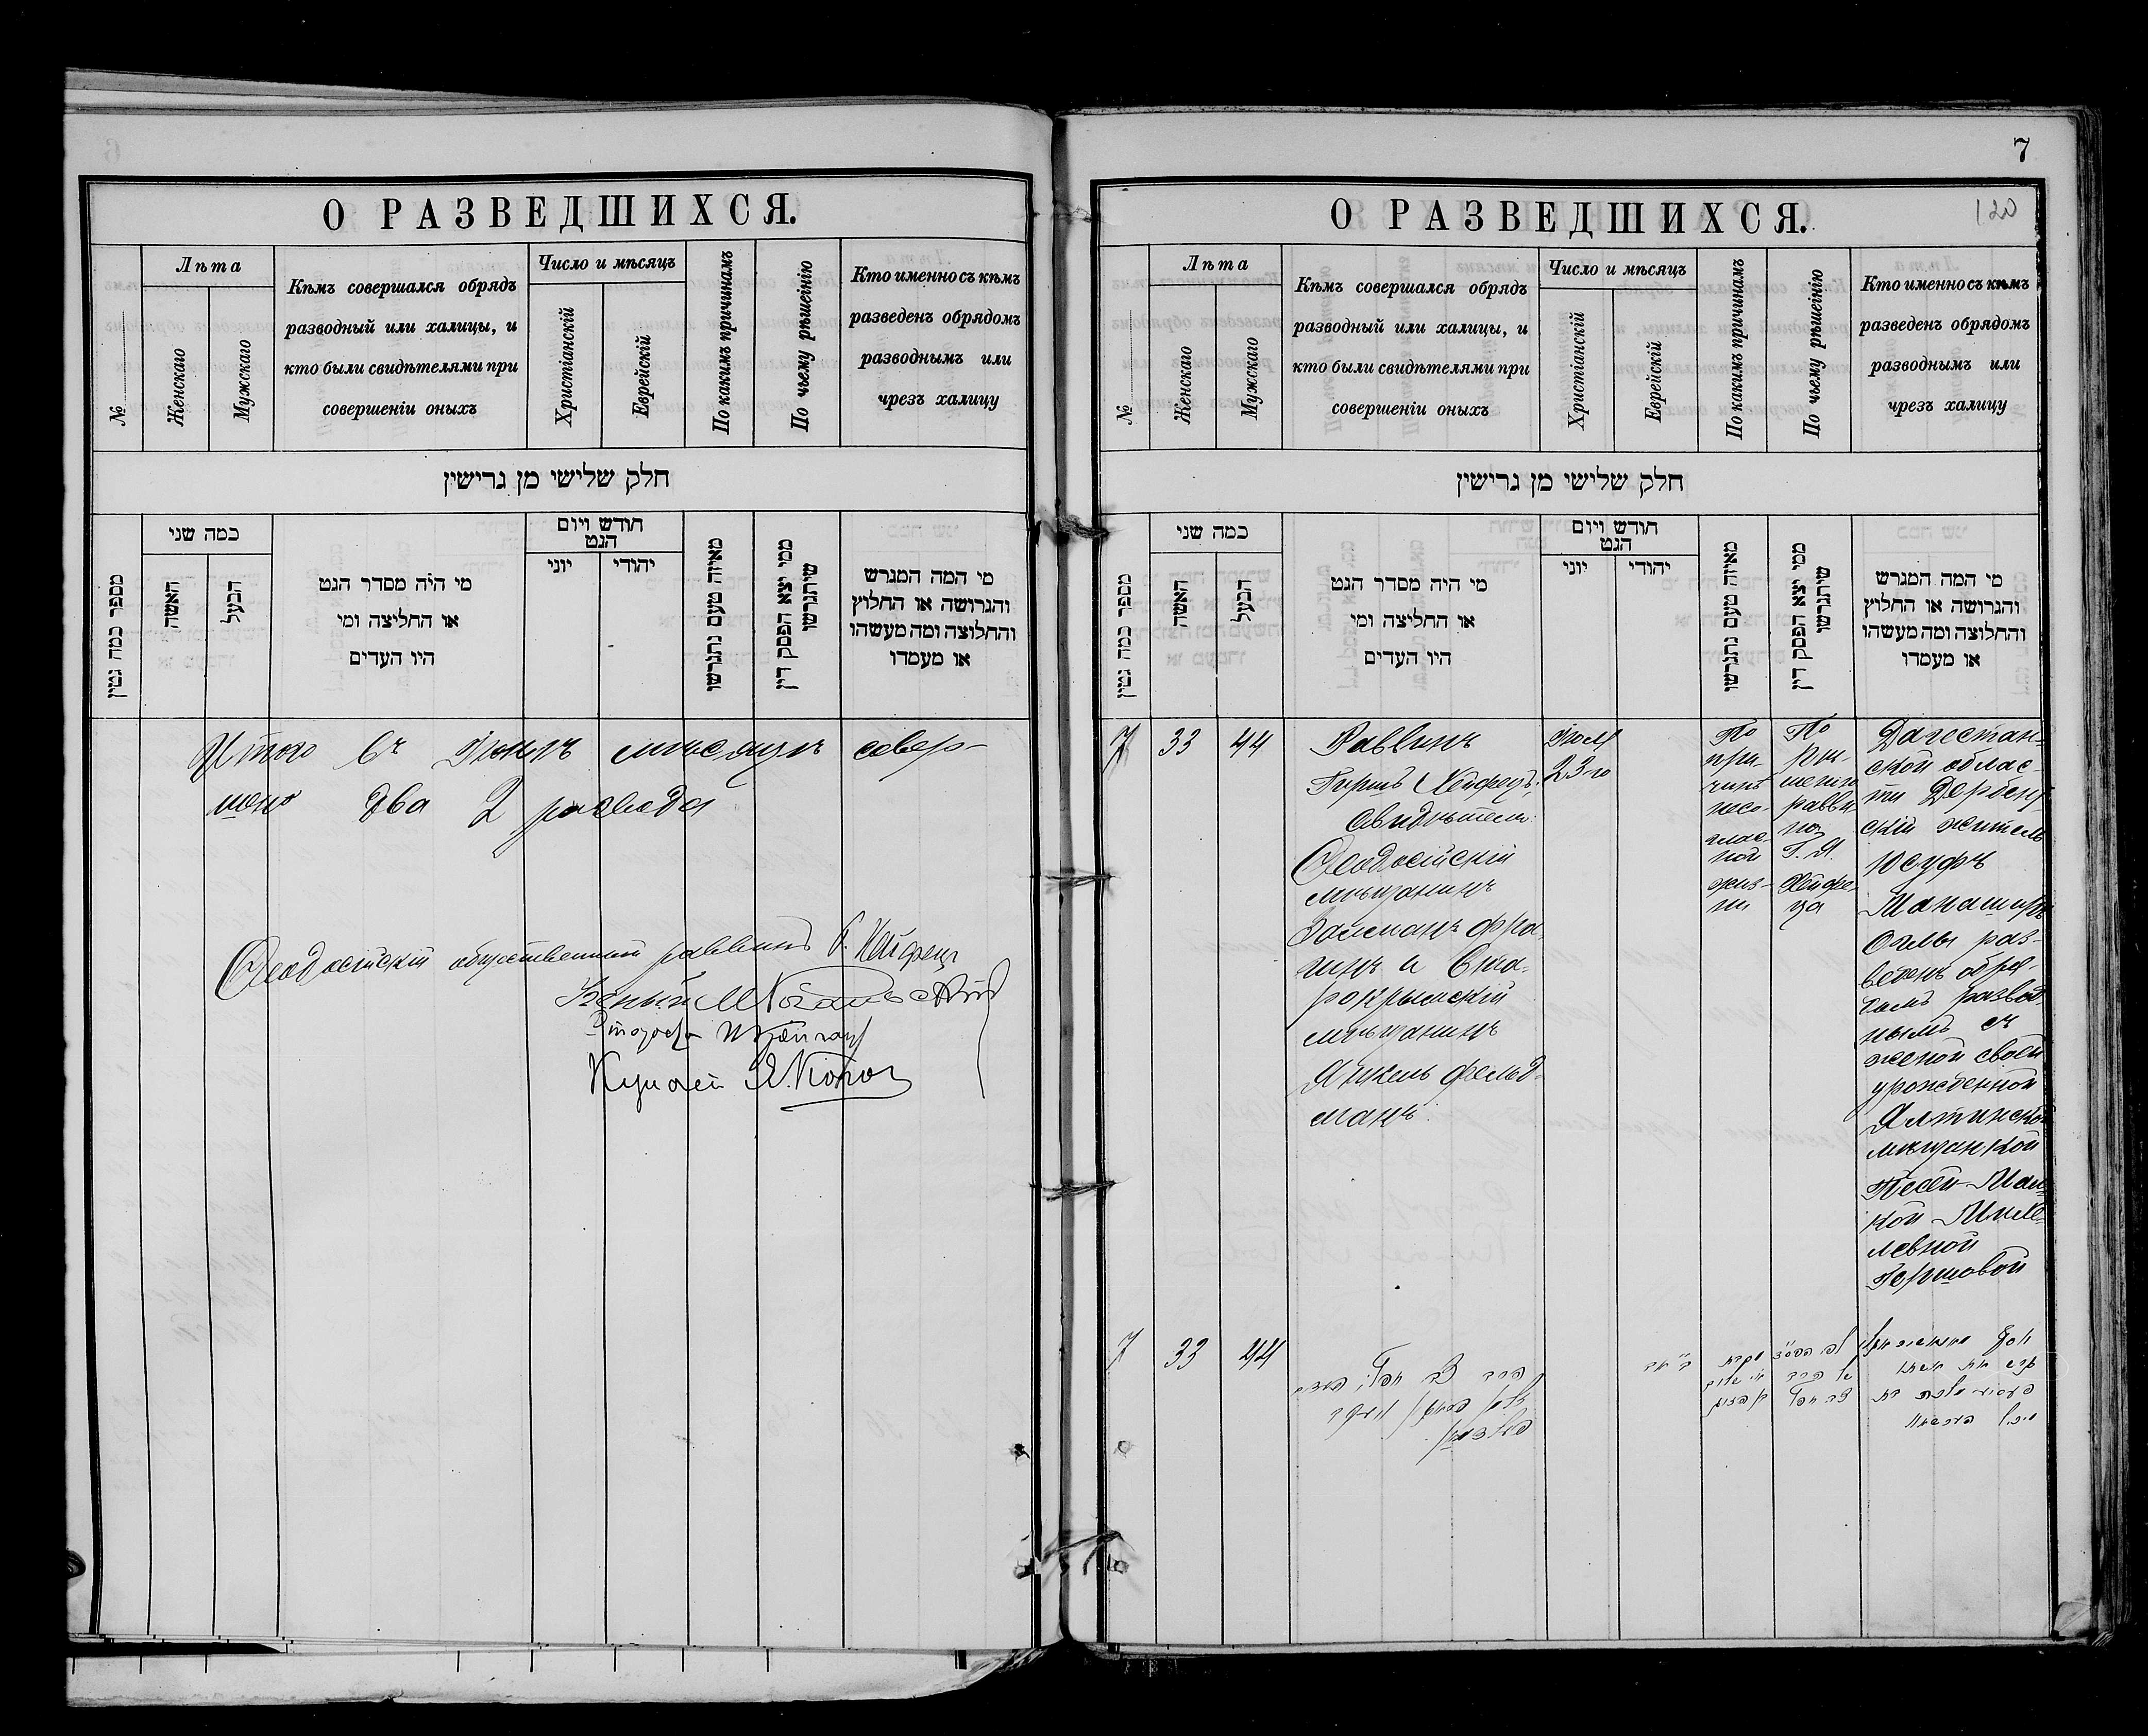 О РАЗВЕДШИХСЯ.
№
Лѣта
Женскаго
Мужскаго
Кѣмъ совершался обрядъ
разводный или халицы, и
кто были свидѣтелями при
совершеніи оныхъ
Число и мѣсяцъ
Христіанскій
Еврейскій
По какимъ причинамъ
По чьему рѣшеінію
Кто именно съ кѣмъ
разведенъ обрядомъ
разводнымъ или
чрезъ халицу
חלק שלישי מן גרישין
מספר כמה גטין
כמה שני
האשה
הבעל
מי היה מסדר הגט
או החליצה ומי
היו העדים
חודש ויום
הגט
יוני
יהודי
מאיזה טעם נתגרשו
ממי יצא הפסק דין
שיתגרשו
מי המה המגרש
והגרושה או החלוץ
והחלוצה ומה מעשהו
או מעמדו
Итого въ Іюнѣ мѣсяцѣ совер-
шено два 2 развода
Ѳеодосійскій общественный раввинъ Г. Хейфецъ
Ученый
Староста
Казначей
7
120
О РАЗВЕДШИХСЯ.
№
Лѣта
Женскаго
Мужскаго
Кѣмъ совершался обрядъ
разводный или халицы, и
кто были свидѣтелями при
совершеніи оныхъ
Число и мѣсяцъ
Христіанскій
Еврейскій
По какимъ причинамъ
По чьему рѣшеінію
Кто именно съ кѣмъ
разведенъ обрядомъ
разводнымъ или
чрезъ халицу
חלק שלישי מן גרישין
מספר כמה גטין
כמה שני
האשה
הבעל
מי היה מסדר הגט
או החליצה ומי
היו העדים
חודש ויום
הגט
יוני
יהודי
מאיזה טעם נתגרשו
ממי יצא הפסק דין
שיתגרשו
מי המה המגרש
והגרושה או החלוץ
והחלוצה ומה מעשהו
או מעמדו
7
33
44
Раввинъ
Гиршъ Хейфецъ;
Свидѣтели:
Ѳеодосійскій
мѣщанинъ
Залманъ Фра-
чинъ и Ста-
рокрымскій
мѣщанинъ
Янкель Фельд-
манъ.
Іюля
23-го
По
при-
чинѣ
несо-
глас-
ной
жиз-
ни
По
рѣ-
шенію
равви-
на
Г. Я.
Хейфе-
ца
Дагестан-
ской облас-
ти Дербент
скій житель
Юсуфъ
Манаширъ
Оглы раз-
веденъ обря-
домъ развод-
нымъ съ
женой своей
урожденной
Ялтинской
мѣщанкой
Песей-Мал-
кой
левной
Гершовой
7
33
44